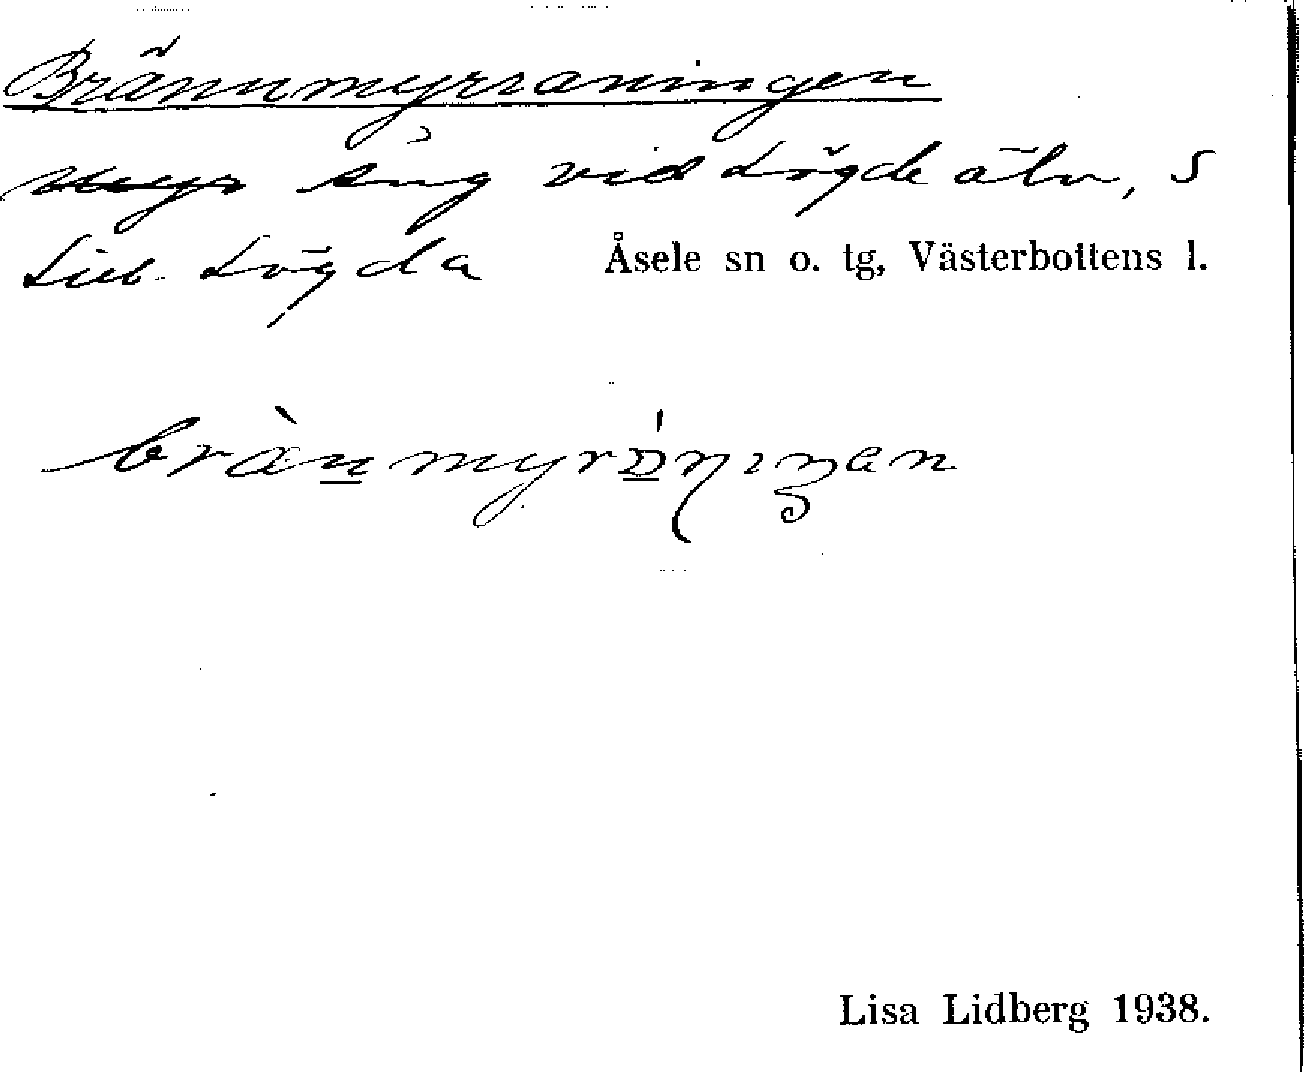 Brännmyrraningen
myr äng vid Lögde älv, S
Lögda Åsele sn o. tg, Västerbottens l.
brànmyrɒ́ɳıŋan
Lisa Lidberg 1938.